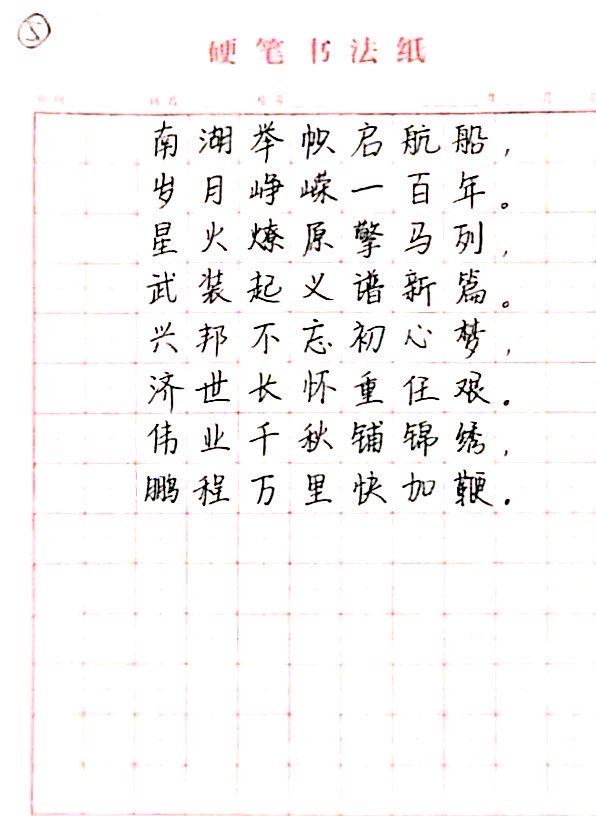 硬笔书法纸
南湖举帜启航船,
岁月峥嵘一百年。
星火燎原擎马列,
武装起义谱新篇。
兴邦不忘初心梦,
济世长怀重任艰。
伟业千秋铺锦绣,
鹏程万里快加鞭。